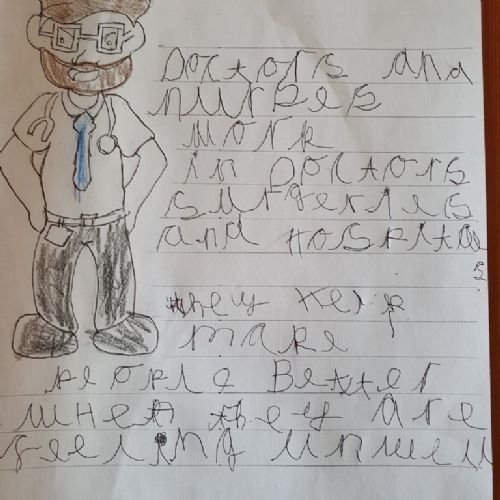 Doctors and
nurses
work
in Doctors
surgeries
and Hospita
s
they help
make
people Better
when they are
feeling unwell